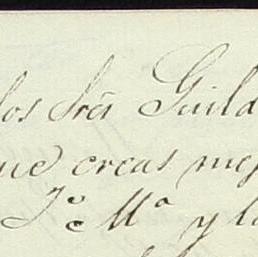 los Srēs Guild
que creas mej
J.e Ma y la